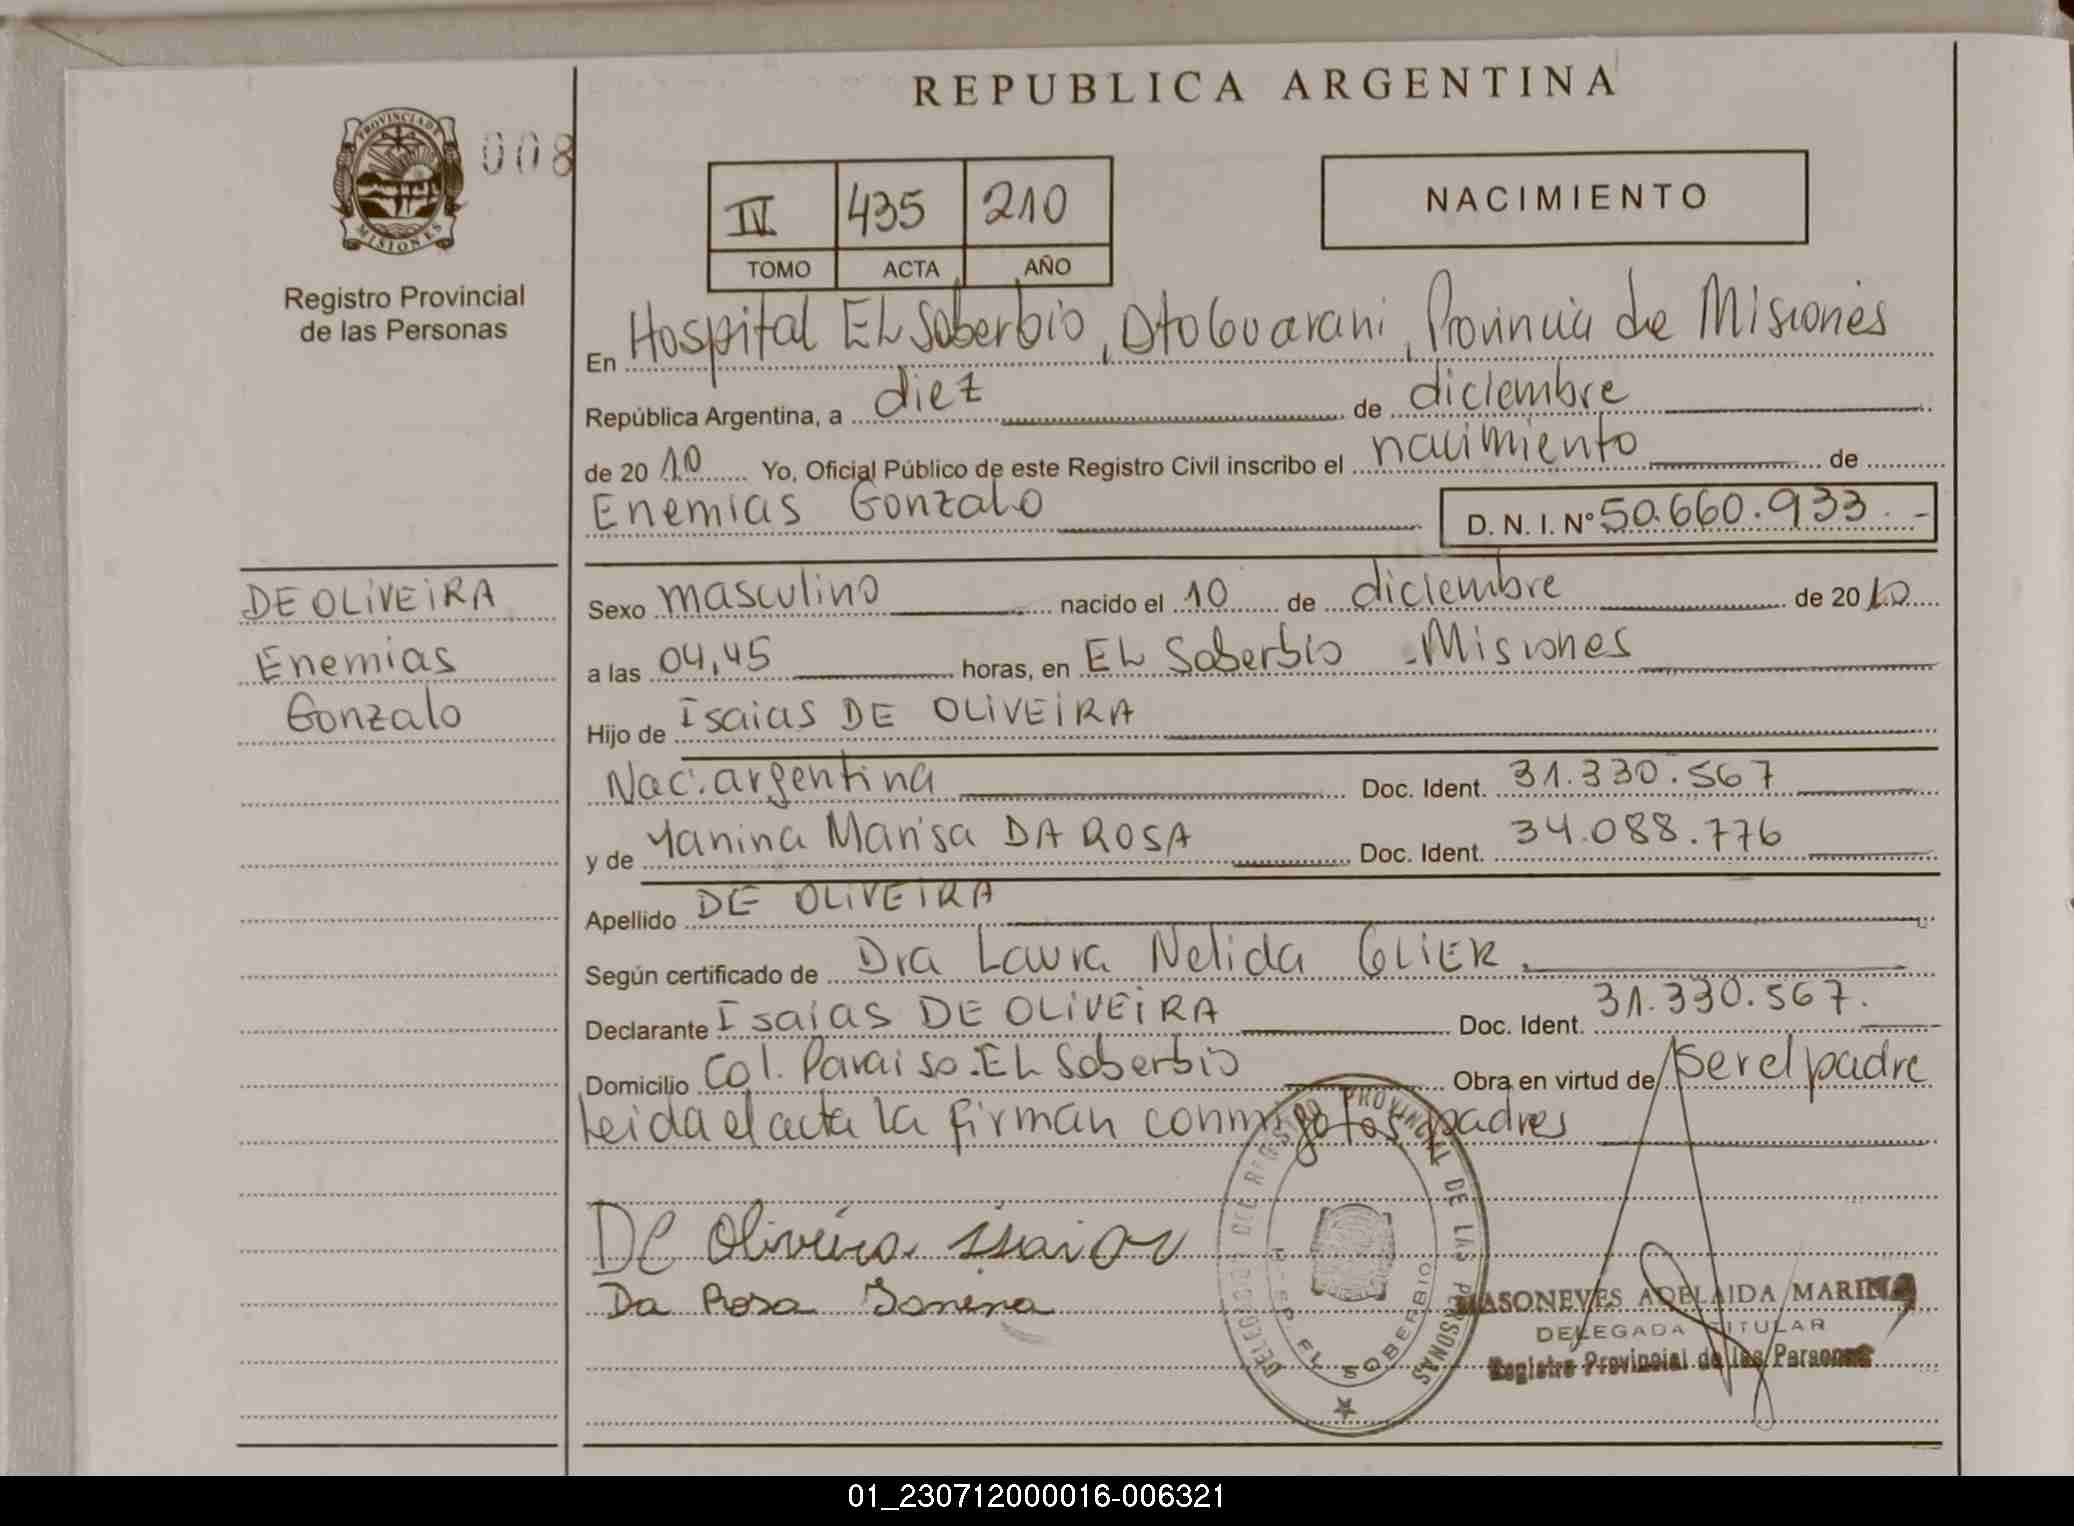 REPUBLICA ARGENTINA
PROVINCIA DE
MISIONES
008
Registro Provincial
de las Personas
IV 435 210
TOMO ACTA AÑO
NACIMIENTO
En Hospital EL Soberbio, Dto Guarani, Provincia de Misiones
República Argentina, a diez de diciembre
de 2010 Yo, Oficial Público de este Registro Civil inscribo el nacimiento de
Enemias Gonzalo D. N. I. Nº 50.660.933.-
DE OLIVEIRA
Enemias
Gonzalo
Sexo masculino nacido el 10 de diciembre de 2010
a las 04,45 horas, en EL Soberbio - Misiones
Hijo de Isaias DE OLIVEIRA
Nac. argentina Doc. Ident. 31.330.567
y de Yanina Marisa DA ROSA Doc. Ident. 34.088.776
Apellido DE OLIVEIRA
Según certificado de Dra Laura Nelida GLIER.
Declarante Isaias DE OLIVEIRA Doc. Ident. 31.330.567.
Domicilio Col. Paraiso. EL Soberbio Obra en virtud de ser el padre
Leida el acta la firman conmigo los padres
De Oliveira Isaias
Da Rosa Janina
DELEGACION DEL REGISTRO PROVINCIAL DE LAS PERSONAS
EL SOBERBIO
MASONEVES ADELAIDA MARINA
DELEGADA TITULAR
Registro Provincial de las Personas
01_230712000016-006321